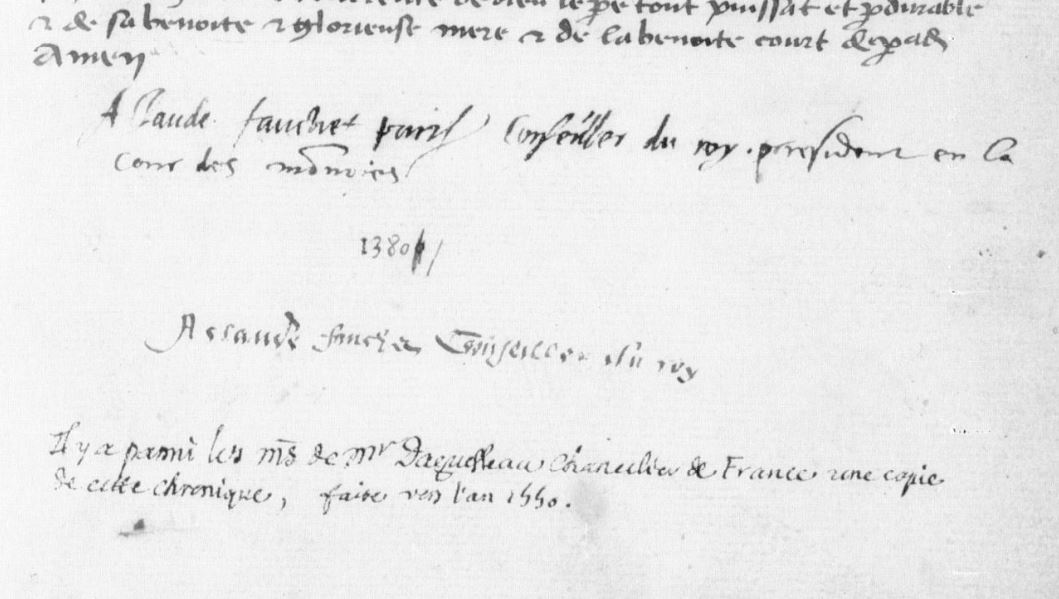 de dieu le pe tout puissat et pdurable
& de sa benoite & glorieuse mere & de la benoite court de
Amen
A Claude fauchet conseiller du roy . president en la
cour des monoies
1380
A Claude fauchet Conseiller du roy
Il y a parmi les ms de Mr Daguesseau Chancelier de France une copie
de cette chronique, faite vers l'an 1550.